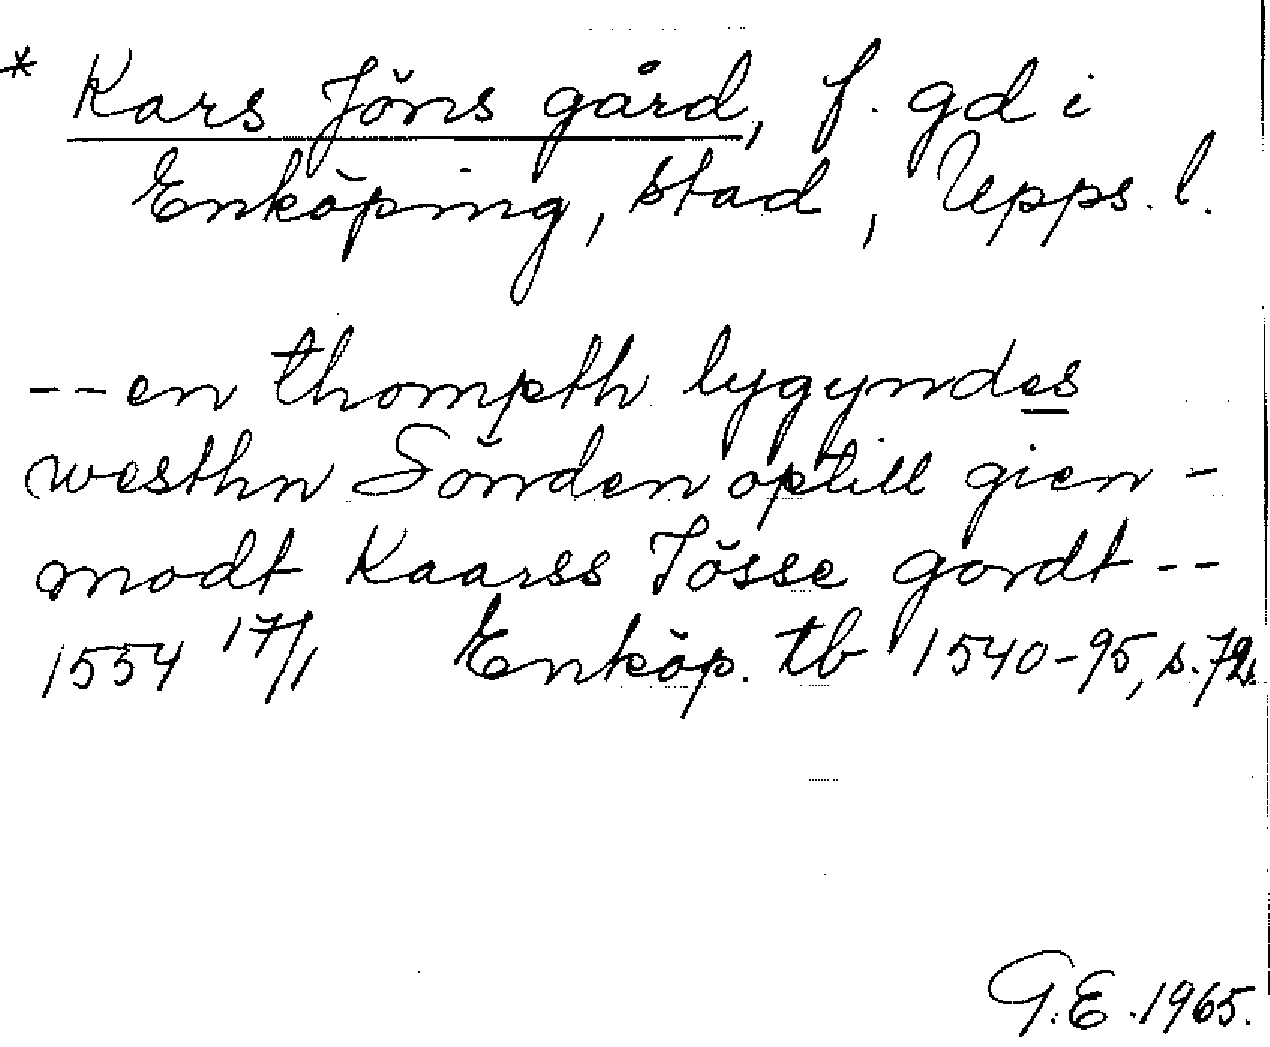 * Kars Jöns gård, f. gd i
Enköping, stad, Upps. l.
--en thompth lygyndes
westhn Sönden optill gien-
modt Kaarss Jösse gordt--
1554 17/1 Enköp. tb 1540-95, s. 72.
G.E. 1965.